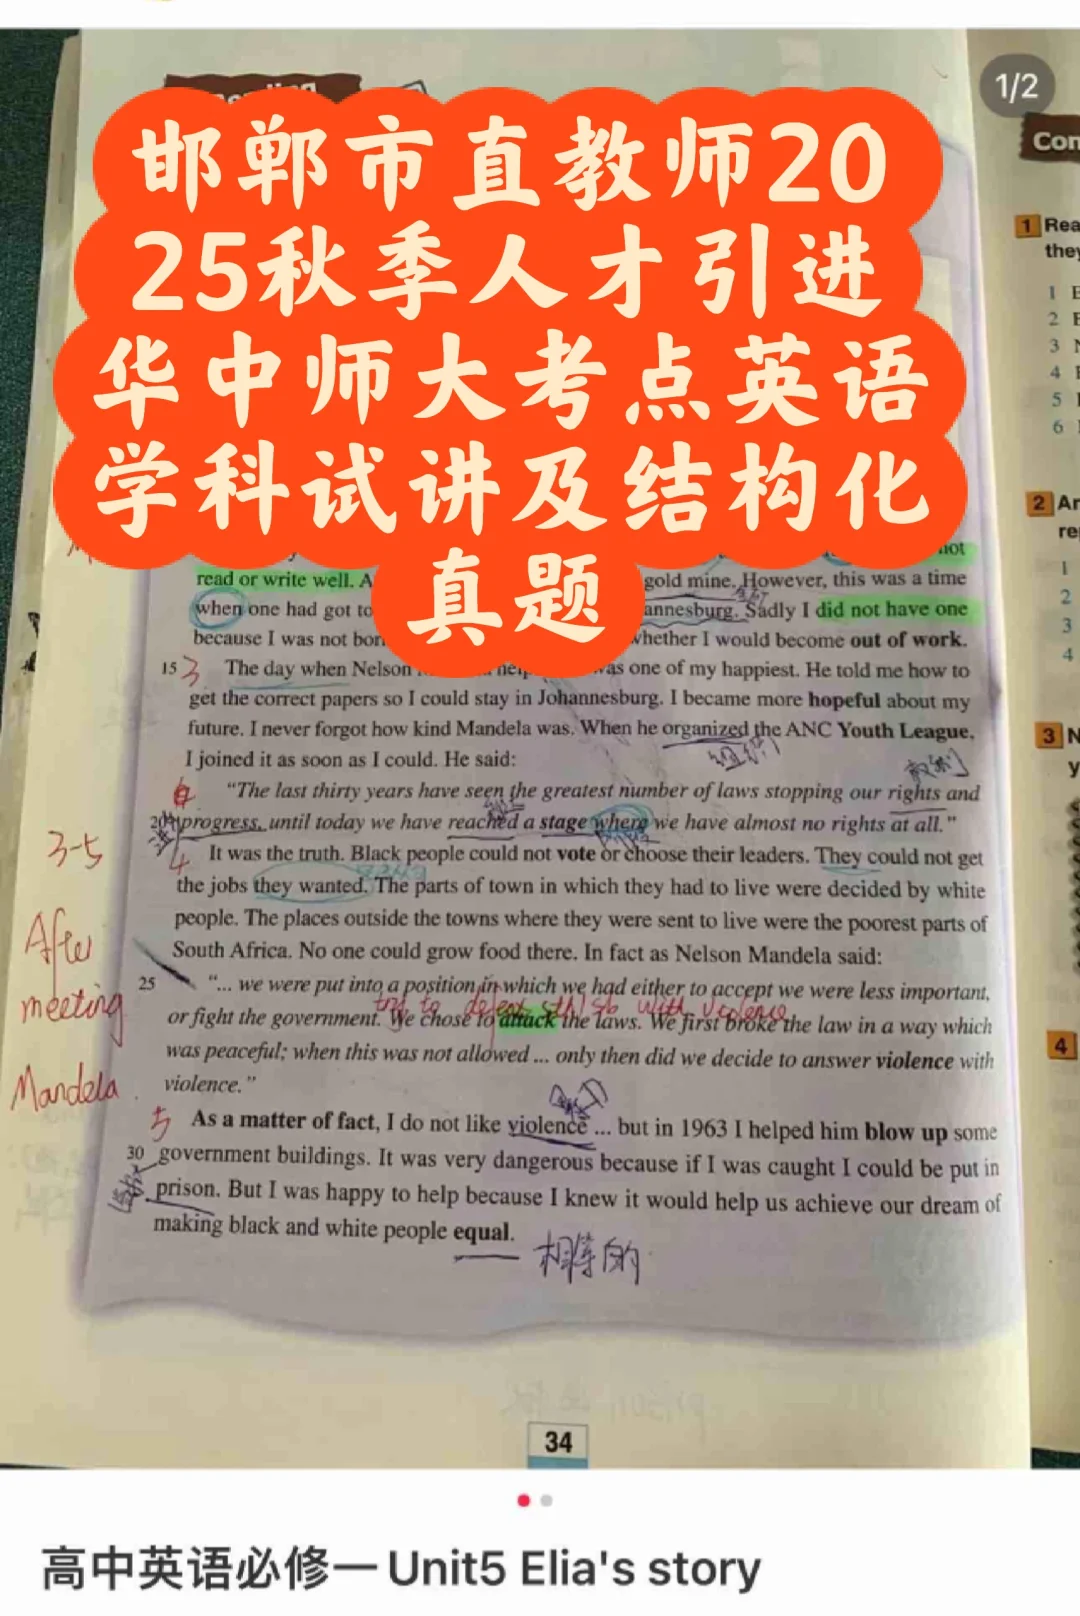 1/2
邯郸市直教师20
25秋季人才引进
华中师大考点英语
学科试讲及结构化
真题
Con
1 Rea
they
1 E
2 E
3 N
4 E
5
6
2 Ar
re
1
2
3
4
3 N
y
4
not
read or write well. A gold mine. However, this was a time
when one had got to annesburg. Sadly I did not have one
because I was not bor whether I would become out of work.
15 3 The day when Nelson help as one of my happiest. He told me how to
get the correct papers so I could stay in Johannesburg. I became more hopeful about my
future. I never forgot how kind Mandela was. When he organized the ANC Youth League,
组织
I joined it as soon as I could. He said:
权利
"The last thirty years have seen the greatest number of laws stopping our rights and
20 progress, until today we have reached a stage where we have almost no rights at all."
3-5
4 It was the truth. Black people could not vote or choose their leaders. They could not get
the jobs they wanted. The parts of town in which they had to live were decided by white
people. The places outside the towns where they were sent to live were the poorest parts of
After
South Africa. No one could grow food there. In fact as Nelson Mandela said:
25 "... we were put into a position in which we had either to accept we were less important,
meeting
or fight the government. We chose to attack the laws. We first broke the law in a way which
was peaceful; when this was not allowed ... only then did we decide to answer violence with
Mandela
violence."
5 As a matter of fact, I do not like violence ... but in 1963 I helped him blow up some
30 government buildings. It was very dangerous because if I was caught I could be put in
prison. But I was happy to help because I knew it would help us achieve our dream of
making black and white people equal.
相等的
34
高中英语必修一Unit5 Elia's story